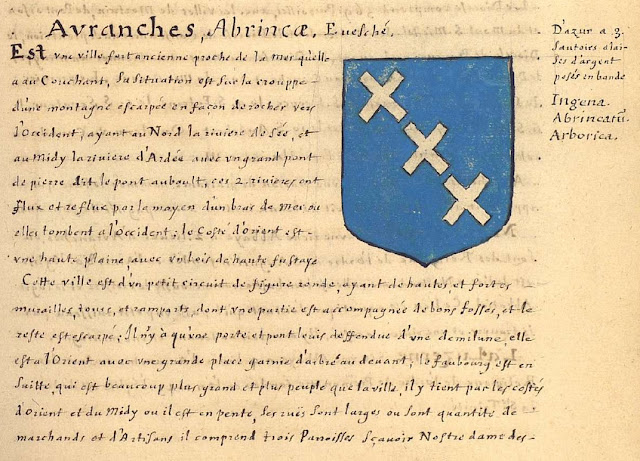 Avranches, Abrincæ, Evesché.
Est vne ville fort ancienne proche de la mer qu'elle
a au Couchant, sa situation est sur la crouppe
d'une montagne escarpée en façon de rocher vers
l'Occident, ayant au Nord la riviere de Sée, et
au Midy la riviere d'Ardée auec vn grand pont
de pierre dit le pont auboult, ces 2. rivieres ont
flux et reflux par le moyen d'un bras de mer ou
elles tombent a l'Occident; le Costé d'orient est
vne haute plaine, avec vn bois de haute fustaye
Cette ville est d'un petit circuit de figure ronde, ayant de hautes et fortes
murailles, tours, et ramparts dont vne partie est accompagnée de bons fossés, et le
reste est escarpé; Il n'y a qu'vne porte et pont leuis deffendue d'vne demilune, elle
est a l'Orient auec vne grande place garnie d'arbres au deuant, le fauxbourg est en
saille, qui est beaucoup plus grand et plus peuplé que la ville, il y tient par les costés
d'orient et du Midy ou il est en pente, ses rües sont larges ou sont quantité de
marchands et d'Artisans il comprend trois Paroisses sçauoir Nostre dame des-
D'azur a 3.
Sautoirs alai-
ses d'argent
posés en bande
Ingena.
Abrincatũ
Arborica.